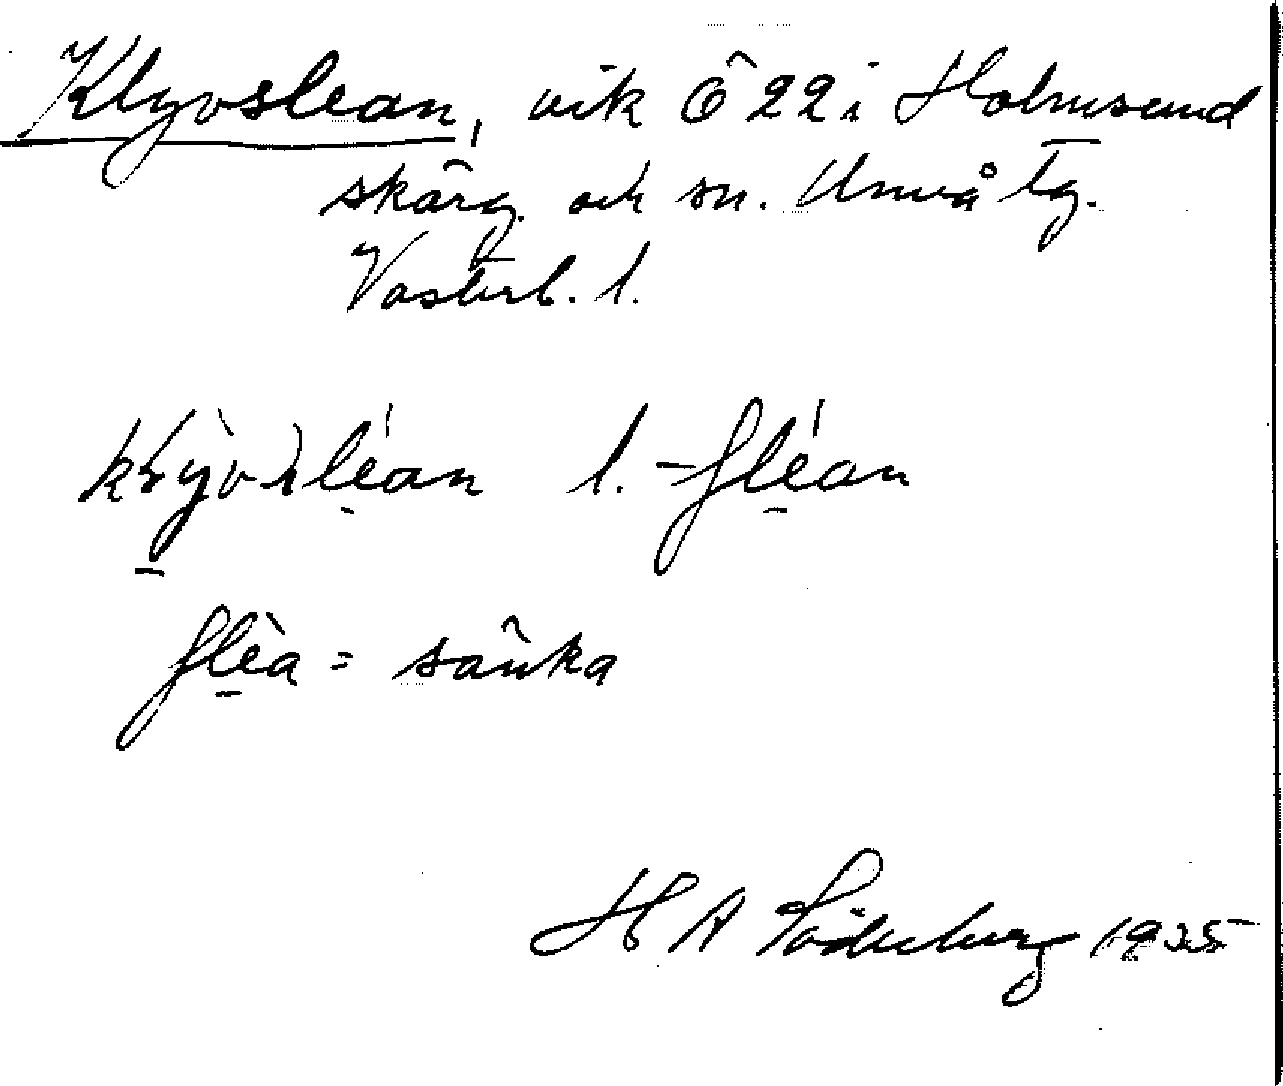 Klyvslean, vik Ö 22 i Holmsund
skärg. och sn. Umeå tg.
Västerb. l.
l. -flean
flèa = sänka
H A Söderberg 1925